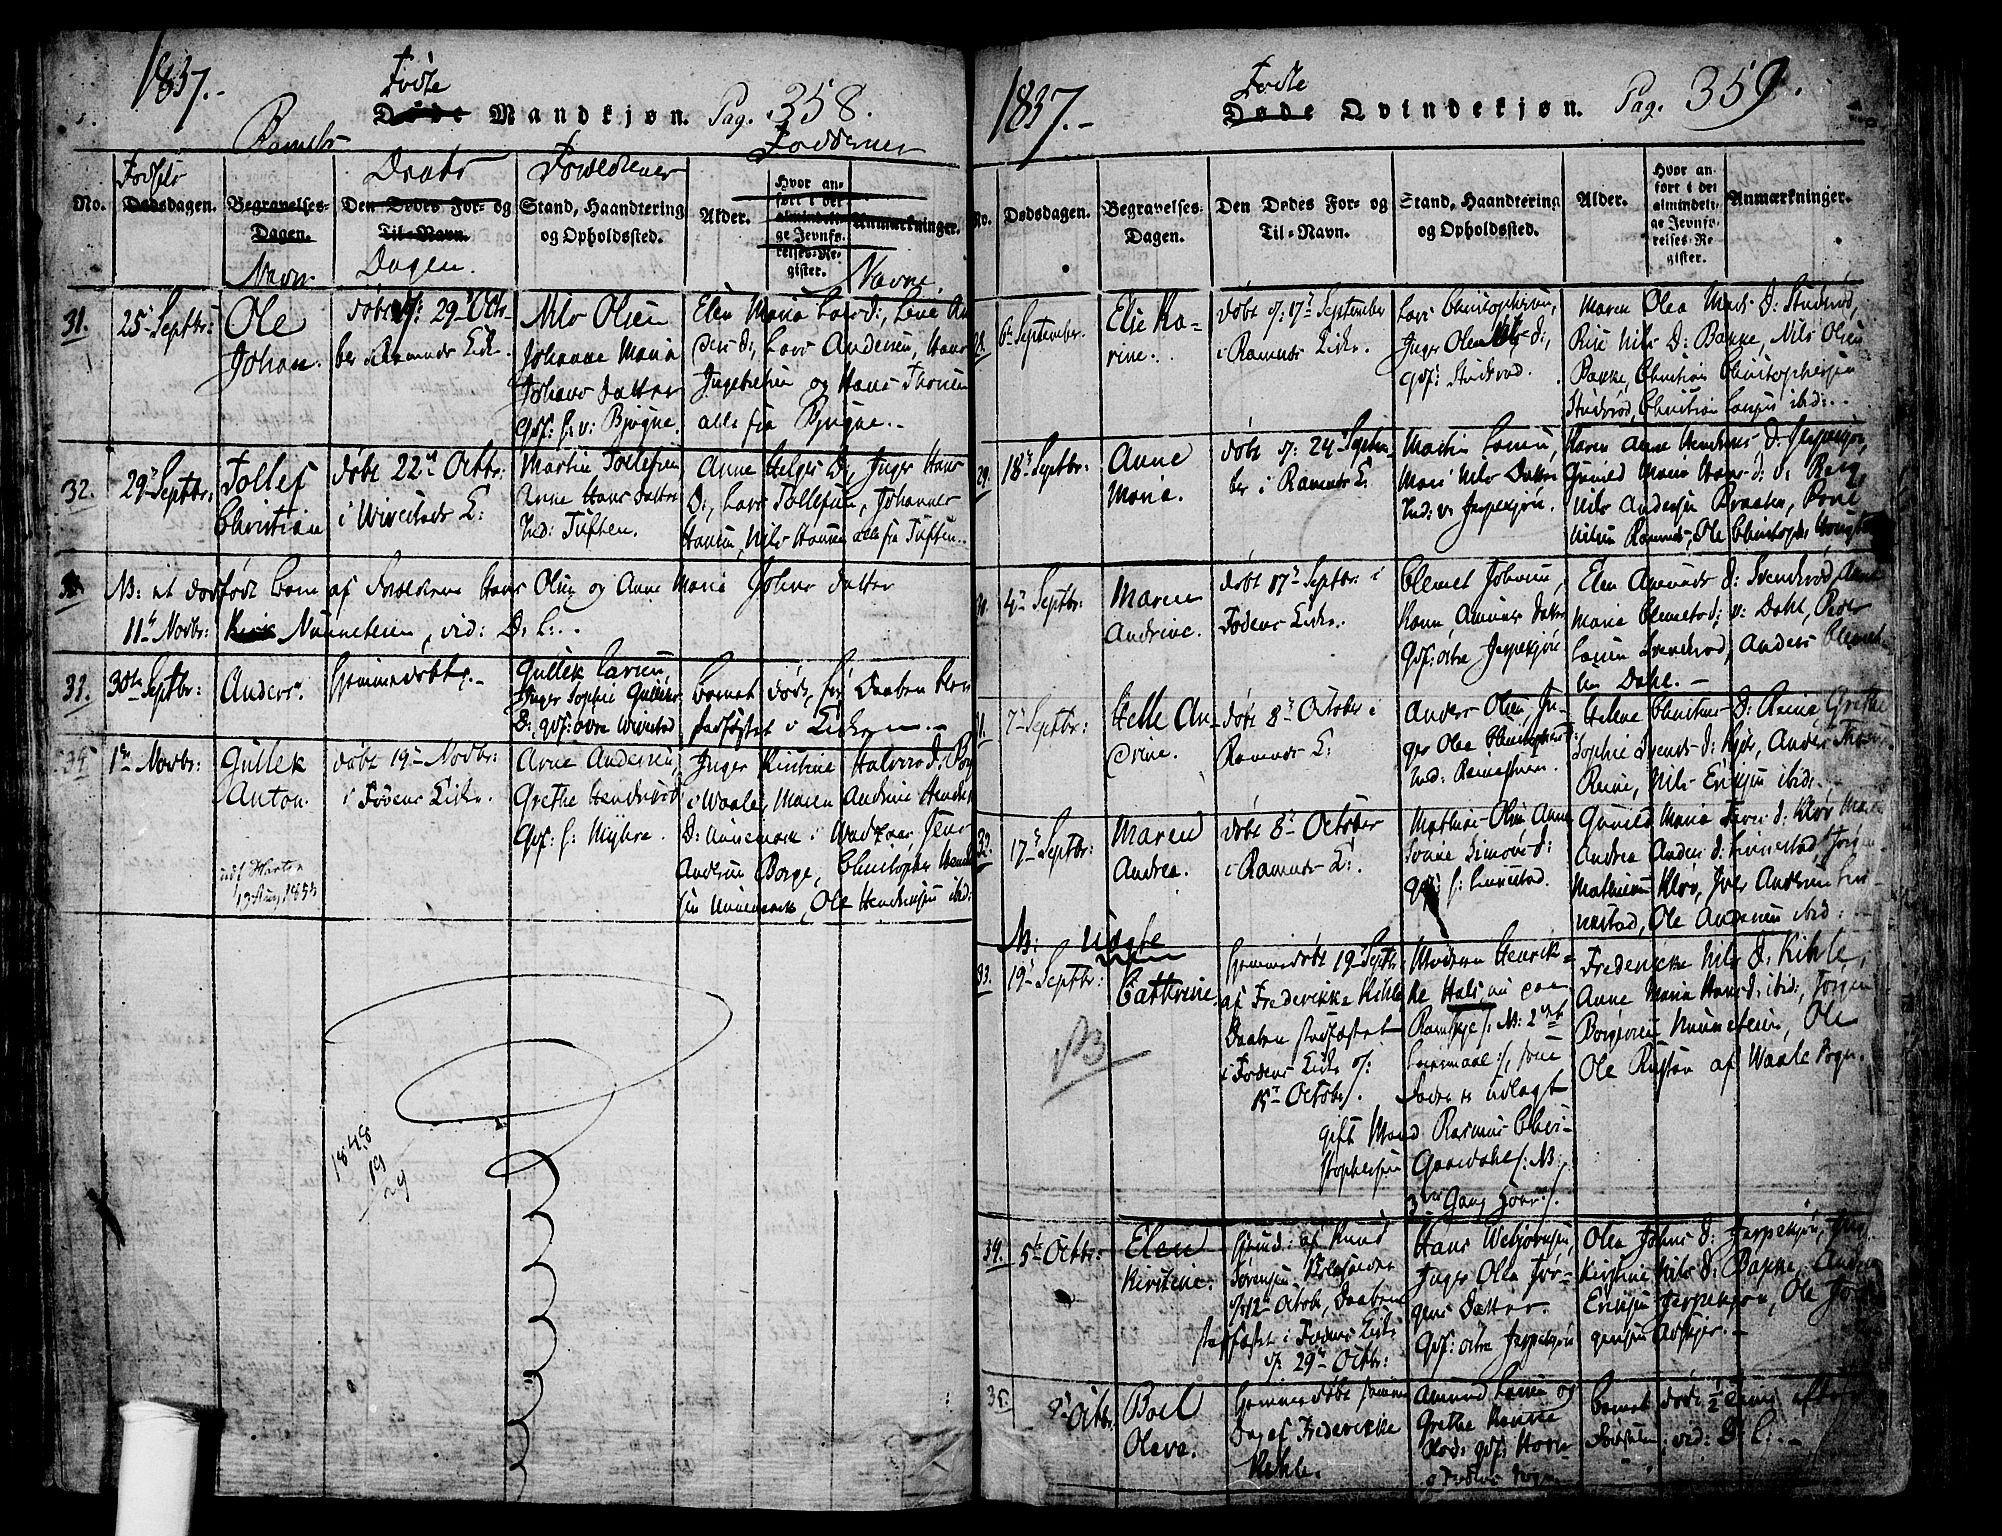 1837.-
Fødte
Døde Mandkjøn. Pag. 358.
Barnets
Fadderne
Daabs
Forældrenes
Fødsels
No.
Dødsdagen.
Begravelses-
Dagen.
Navn.
Den Dødes For- og
Til-Navn.
Dagen.
Stand, Haandtering
og Opholdssted.
Alder.
Hvor an-
ført i det
almindeli-
ge Jevnfø-
relses-Re-
gister.
Anmærkninger.
Navne.
31.
25 Septbr:
Ole
Johan.
døbt d: 29 Octo-
ber i Ramnæs Kirke.
Nils Olsen
Johanne Maria
Johans Datter
Gdf: Bjøgne.
Elen Maria Lars d:, Lene An
ders d:, Lars Andersen, Hans
Ingebretsen og Hans Thoresen
alle fra Bjøgne.-
32.
29 Septbr:
Tollef
Christian
døbt 22 Octbr.
i Wivestads K:
Martin Tollefsen
Anne Hans Datter
Ind: Tuften.
Anne Helges D:, Inger Hans
D:, Lars Tollefsen, Johannes
Hansen, Nils Hansen alle fra Tuften.
NB: et dødfødt Barn af Forældrene Hans Olsen og Anne Maria Johns Datter
11 Novbr: Nunneteien, vid: D. L:.
33.
30te Septbr:
Anders.
Hjemmedøbt.-
Gullek Larsen,
Inger Sophie Gulliks
D: gdf: øvre Wivestad
Barnet døde, før Daaben blev
stadfæstet i Kirken.-
34.
1te Novbr:
Gullek
Anton.
døbt 19 Novbr:
i Fodens Kirke.
Arne Andersen,
Grethe Hendrichs d:
Gdf: Myhre.
Inger Kirstine Halvors d: Borge
i Waale, Maren Andrine Hendr
D: Nunemark i Andebue, Jens
Andersen Borge, Christopher Hendrik
sen Nunemark, Ole Hendriksen ibid:
13 Aug. 1855
1848
19
29
1837.-
Fødte
Døde Qvindekjøn. Pag. 359.
No.
Dødsdagen.
Begravelses-
Dagen.
Den Dødes For- og
Til-Navn.
Stand, Haandtering
og Opholdssted.
Alder.
Hvor an-
ført i det
almindeli-
ge Jevnfø-
relses-Re-
gister.
Anmærkninger.
28.
6te September.
Else Ka-
rine.
døbt d: 17 September
i Ramnæs Kirke.
Lars Christophersen,
Inger Olea Nils d:,
Gdf: Studsrød.
Maren Olea Mads D: Studsrød,
Rise Nils D: Bakke, Nils Olsen
Bakke, Christian Christophersen
Studsrød, Christian Larsen ibid:.
29.
18 Septbr:
Anne
Maria.
døbt d: 24 Septem
ber i Ramnæs K:
Martin Larsen,
Mari Nils Datter
Ind: v: Jerpekjøn.
Karen Anne Hendriks D: Jerpekjøn,
Gunild Maria Hans d: v: Berg,
Nils Andersen Braaten, Arne
Nilsen Ramnæs, Ole Christophers
30.
4 Septbr:
Maren
Andrine.
døbt 17 Septbr: i
Fodens Kirke.
Clemet Johnsen,
Karen Amunds Datter
Gdf: østre Jerpekjøn
Elen Amunds D: Svendsrød, Anne
Maria Clemets d: v: Dahl, Peder
Larsen Svendsrød, Anders Clemet-
sen Dahl.-
31.
7 Septbr:
Helle An-
drine.
døbt 8 October i
Ramnæs K:
Anders Olsen, In-
ger Olea Christophers d:
Ind: Reinestuen.
Helene Christens D: Reine, Grethe
Sophie Svends d: Kjær, Anders Thore
Reine, Nils Eriksen ibid:.
32.
17 Septbr:
Maren
Andrea.
døbt 8 October
i Ramnæs K:
Mathias Olsen, Anne
Sonne Simons d:
Gdf: Linnestad.
Gunild Maria Iver d: Klov, Maria
Andrea Anders d: Linnestad, Jørgen
Mathiesen Klov, Iver Andersen Lin-
nestad, Ole Andersen ibid:
NB: Uægte
33.
19 Septbr:
Cathrine.
Hjemmedøbt 19 Septbr
af Frederikke Kihle
Daaben stadfæstet
i Fodens Kirke d:
15 October.
Moderen Henrik-
ke Hals nu paa
Ramskje /: NB: 2det
Leiermaal :/, som
Fader er udlagt
gift Mand Rasmus Chri-
stophersen Gaasdahl /: NB:
3die Gang Hoer :/.
Frederikke Nils D: Kihle,
Anne Maria Hans d: ibid:, Jørgen
Borgersen Nunneteien, Ole
Ole Rustan af Waale Sogn.
NB
34.
5te Octbr:
Elen
Kirstine.
Hjemd: af Knud
Sørensen
d: 12 Octob, Daaben
stadfæstet i Fodens Kirke
d: 29 Octbr:
Hans Webjørnsen,
Inger Olea Jør-
gens Datter
Gdf: østre Jerpekjøn
Olea Johns D: Jerpekjøn,
Kirstine Nils D: Bakke, Anders
Eriksen Jerpekjøn, Ole Jør-
gensen Askjer.-
35.
8 Octbr.
Boel
Olava.
Hjemmedøbt samme
Dag af Frederikke
Kihle.
Amund Larsen og
Grethe Hanne
Gdf:
Barnet døde 1/2 Time efter
Fødselen; vid: D. L:.-